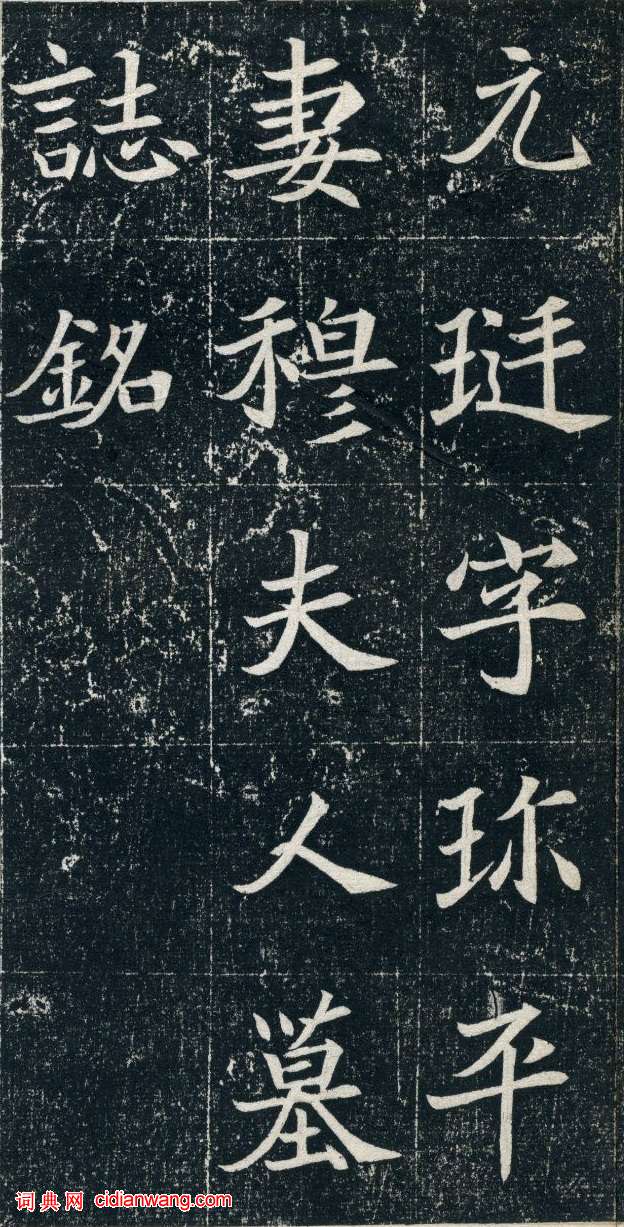 元珽字珎平
妻穆夫人墓
誌銘
词典网 cidianwang.com